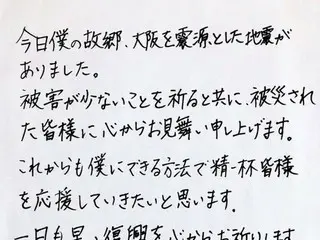 今日僕の故郷、大阪を震源とした地震が
ありました。
被害が少ないことを祈ると共に、被災され
た皆様に心からお見舞い申し上げます。
これからも僕にできる方法で精一杯皆様
を応援していきたいと思います。
一日も早い復興を心からお祈りします